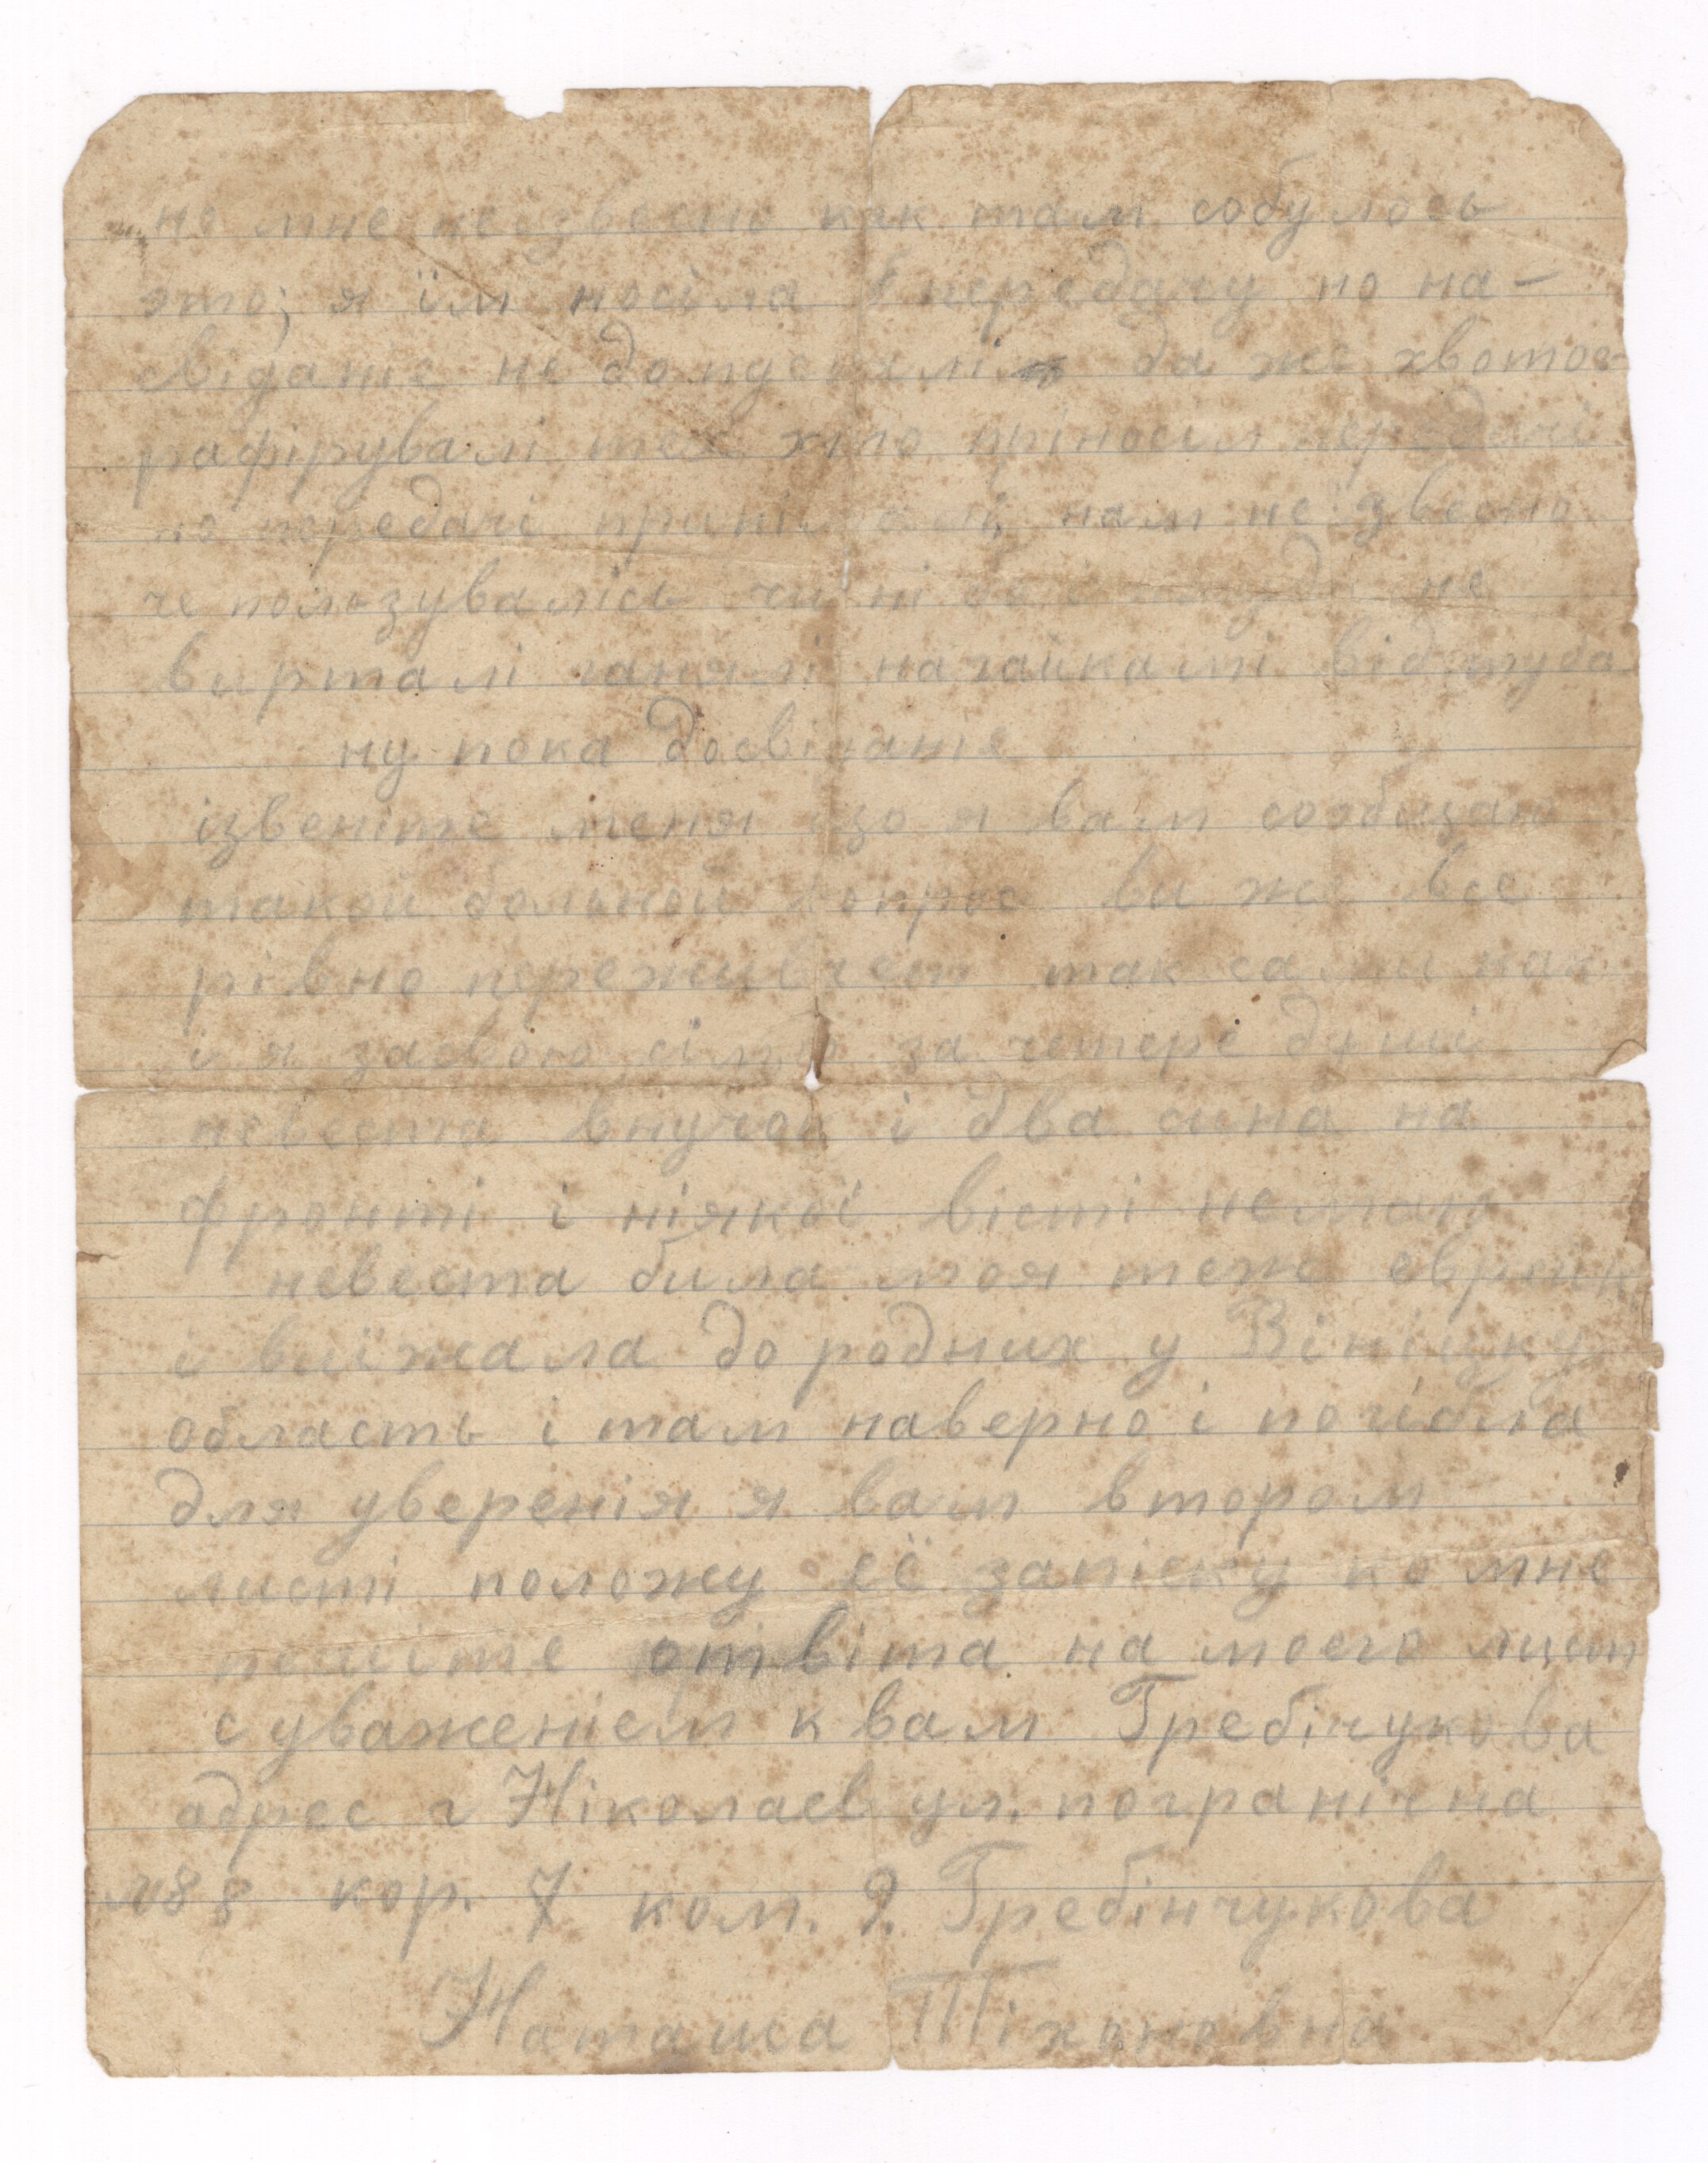 но мне неізвесно как там собулось
это; я їм носіла передачу но на-
відание не допускалі да же хвотог
рафірувалі тех хто пріносіл передачі
но передачі прінімалі, нам неізвесно
че пользувалісь чи ні не
вирталі ганялі нагайкамі відтуда
ну пока досвіданіе
ізвеніте меня що я вам сообщаю
такой больной вопрос ви же все
рівно переживаєт так само как
і я засвою сімю за четере душі
невеста внучок і два сина на
фронті і ніякої вісті немаю
невеста била моя теж еврейк
і виїжала до родних у Вініцку
область і там наверно і погібла
для уверенія я вам втором
листі положу её запіску ко мне
пешіте отвіта на моего лист
с уваженієм к вам Гребінчукова
адрес г Ніколаев ул. погранічна
№88 кор. 7 ком. 9. Гребінчукова
Наташа Тіхоновна